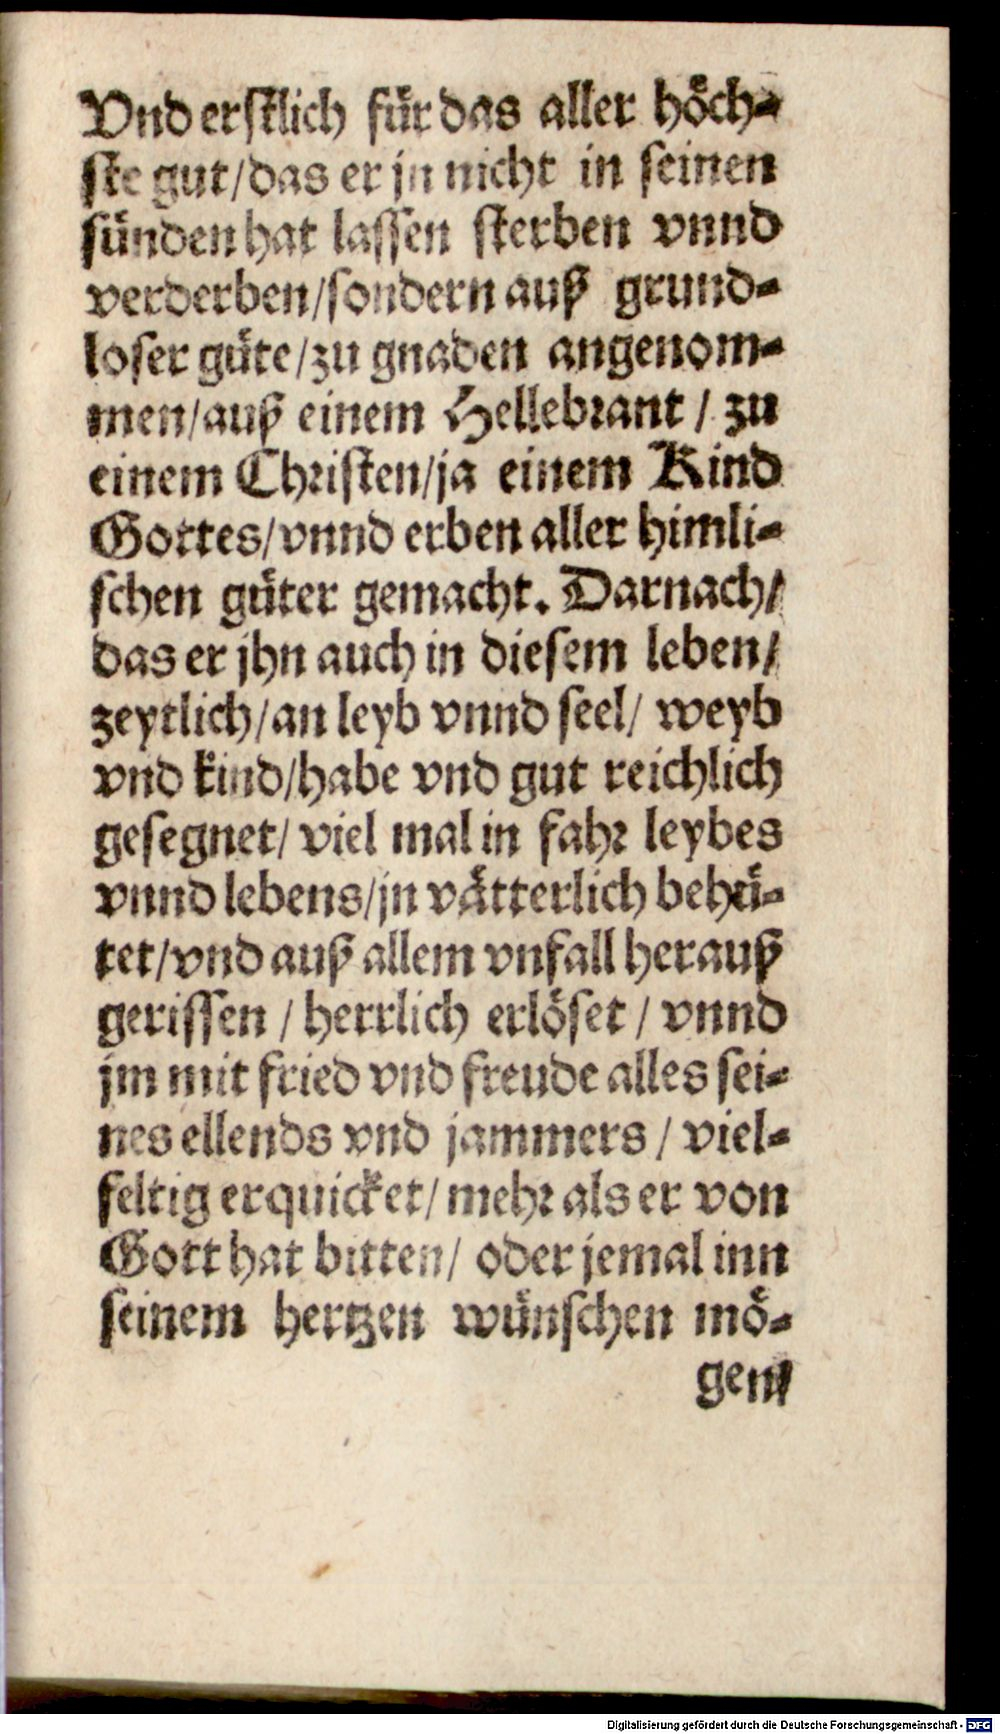 Vnd erstlich für das aller höch-
ste gut/das er jn nicht in seinen
sünden hat lassen sterben vnnd
verderben/sondern auß grund-
loser güte/zu gnaden angenom-
men/auß einem Hellebrant / zu
einem Christen/ja einem Kind
Gottes/vnnd erben aller himli-
schen güter gemacht. Darnach/
das er jhn auch in diesem leben/
zeytlich/an leyb vnnd seel/ weyb
vnd kind/habe vnd gut reichlich
gesegnet/ viel mal in fahr leybes
vnnd lebens/jn vätterlich behü-
tet/vnd auß allem vnfall herauß
gerissen / herrlich erlöset / vnnd
jm mit fried vnd freude alles sei-
nes ellends vnd jammers / viel-
feltig erquicket/ mehr als er von
Gott hat bitten/ oder jemal inn
seinem hertzen wünschen mö-
gen/
Digitalisierung gefördert durch die Deutsche Forschungsgemeinschaft - DFG